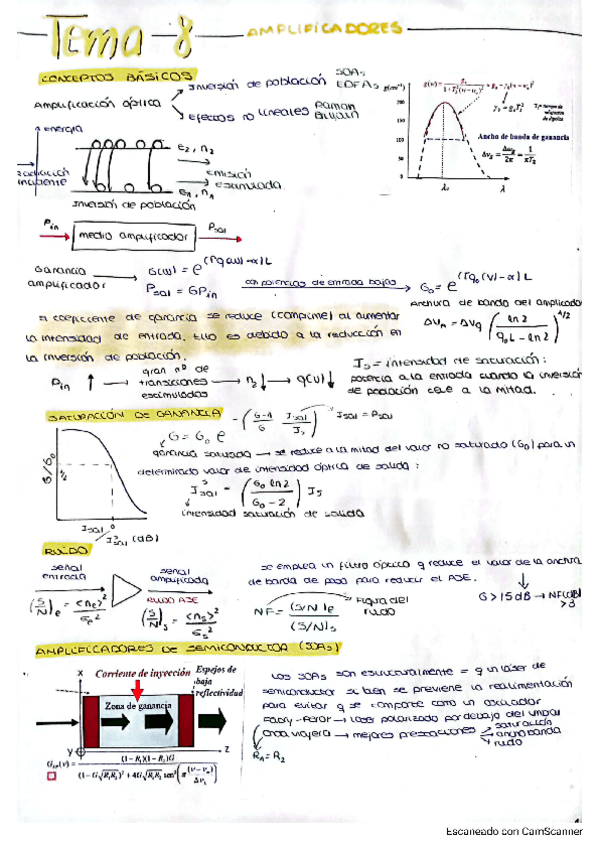 Tema - 8 AMPLIFICADORES
CONCEPTOS BÁSICOS
Amplificación óptica
Inversión de población SOAs EDFAs
efectos no lineales Raman
g(m⁻¹)
200
150
100
50
0
Ancho de banda de ganancia
Δν_g = Δω_g / 2π = 1 / πT₂
λ₀
λ
energía
radiación incidente
e₂, n₂
emisión estimulada
e₁, n₁
Inversión de población
Pin
medio amplificador
Psal
Ganancia amplificador
G(ν) = e^(Γg(ν)-α)L
Psal = GPin
con potencias de entrada bajas
G₀ = e^(Γg₀(ν)-α)L
Anchura de banda del amplificador
Δν_A = Δν_g (ln 2 / g₀L - ln 2)^1/2
El coeficiente de ganancia se reduce (comprime) al aumentar
la intensidad de entrada. Ello es debido a la reducción en
la inversión de población.
Pin ↑ → gran nº de transiciones estimuladas → n₂ ↓ → g(ν) ↓
Is = intensidad de saturación:
potencia a la entrada cuando la inversión
de población cae a la mitad.
SATURACIÓN DE GANANCIA
G = G₀ e^-(G-1/G Isal/Is)
Isal = Psal
ganancia saturada → se reduce a la mitad del valor no saturado (G₀) para un
determinado valor de intensidad óptica de salida:
Iˢsal = (G₀ ln 2 / G₀ - 2) Is
intensidad saturación de salida
G/G₀
1/2
0
Isal/Iˢsal (dB)
RUIDO
señal entrada
señal amplificada
RUIDO ASE
(S/N)e = <ne>² / σe²
(S/N)s = <ns>² / σs²
se emplea un filtro óptico q reduce el valor de la anchura
de banda de paso para reducir el ASE.
NF = (S/N)e / (S/N)s
Figura del ruido
G > 15 dB → NF(dB) > 3
AMPLIFICADORES DE SEMICONDUCTOR (SOAs)
x
Corriente de inyección
Espejos de baja reflectividad
Zona de ganancia
y
z
G_FP(ν) = (1 - R₁)(1 - R₂)G / (1 - G√R₁R₂)² + 4G√R₁R₂ sen²(π (ν - ν_m) / Δν_L)
Los SOAs son estructuralmente = q un láser de
semiconductor si bien se previene la realimentación
para evitar q se comporte como un oscilador
Fabry-Perot → láser polarizado por debajo del umbral
onda viajera → mejores prestaciones
saturación
ancho banda
ruido
R₁ = R₂
Escaneado con CamScanner